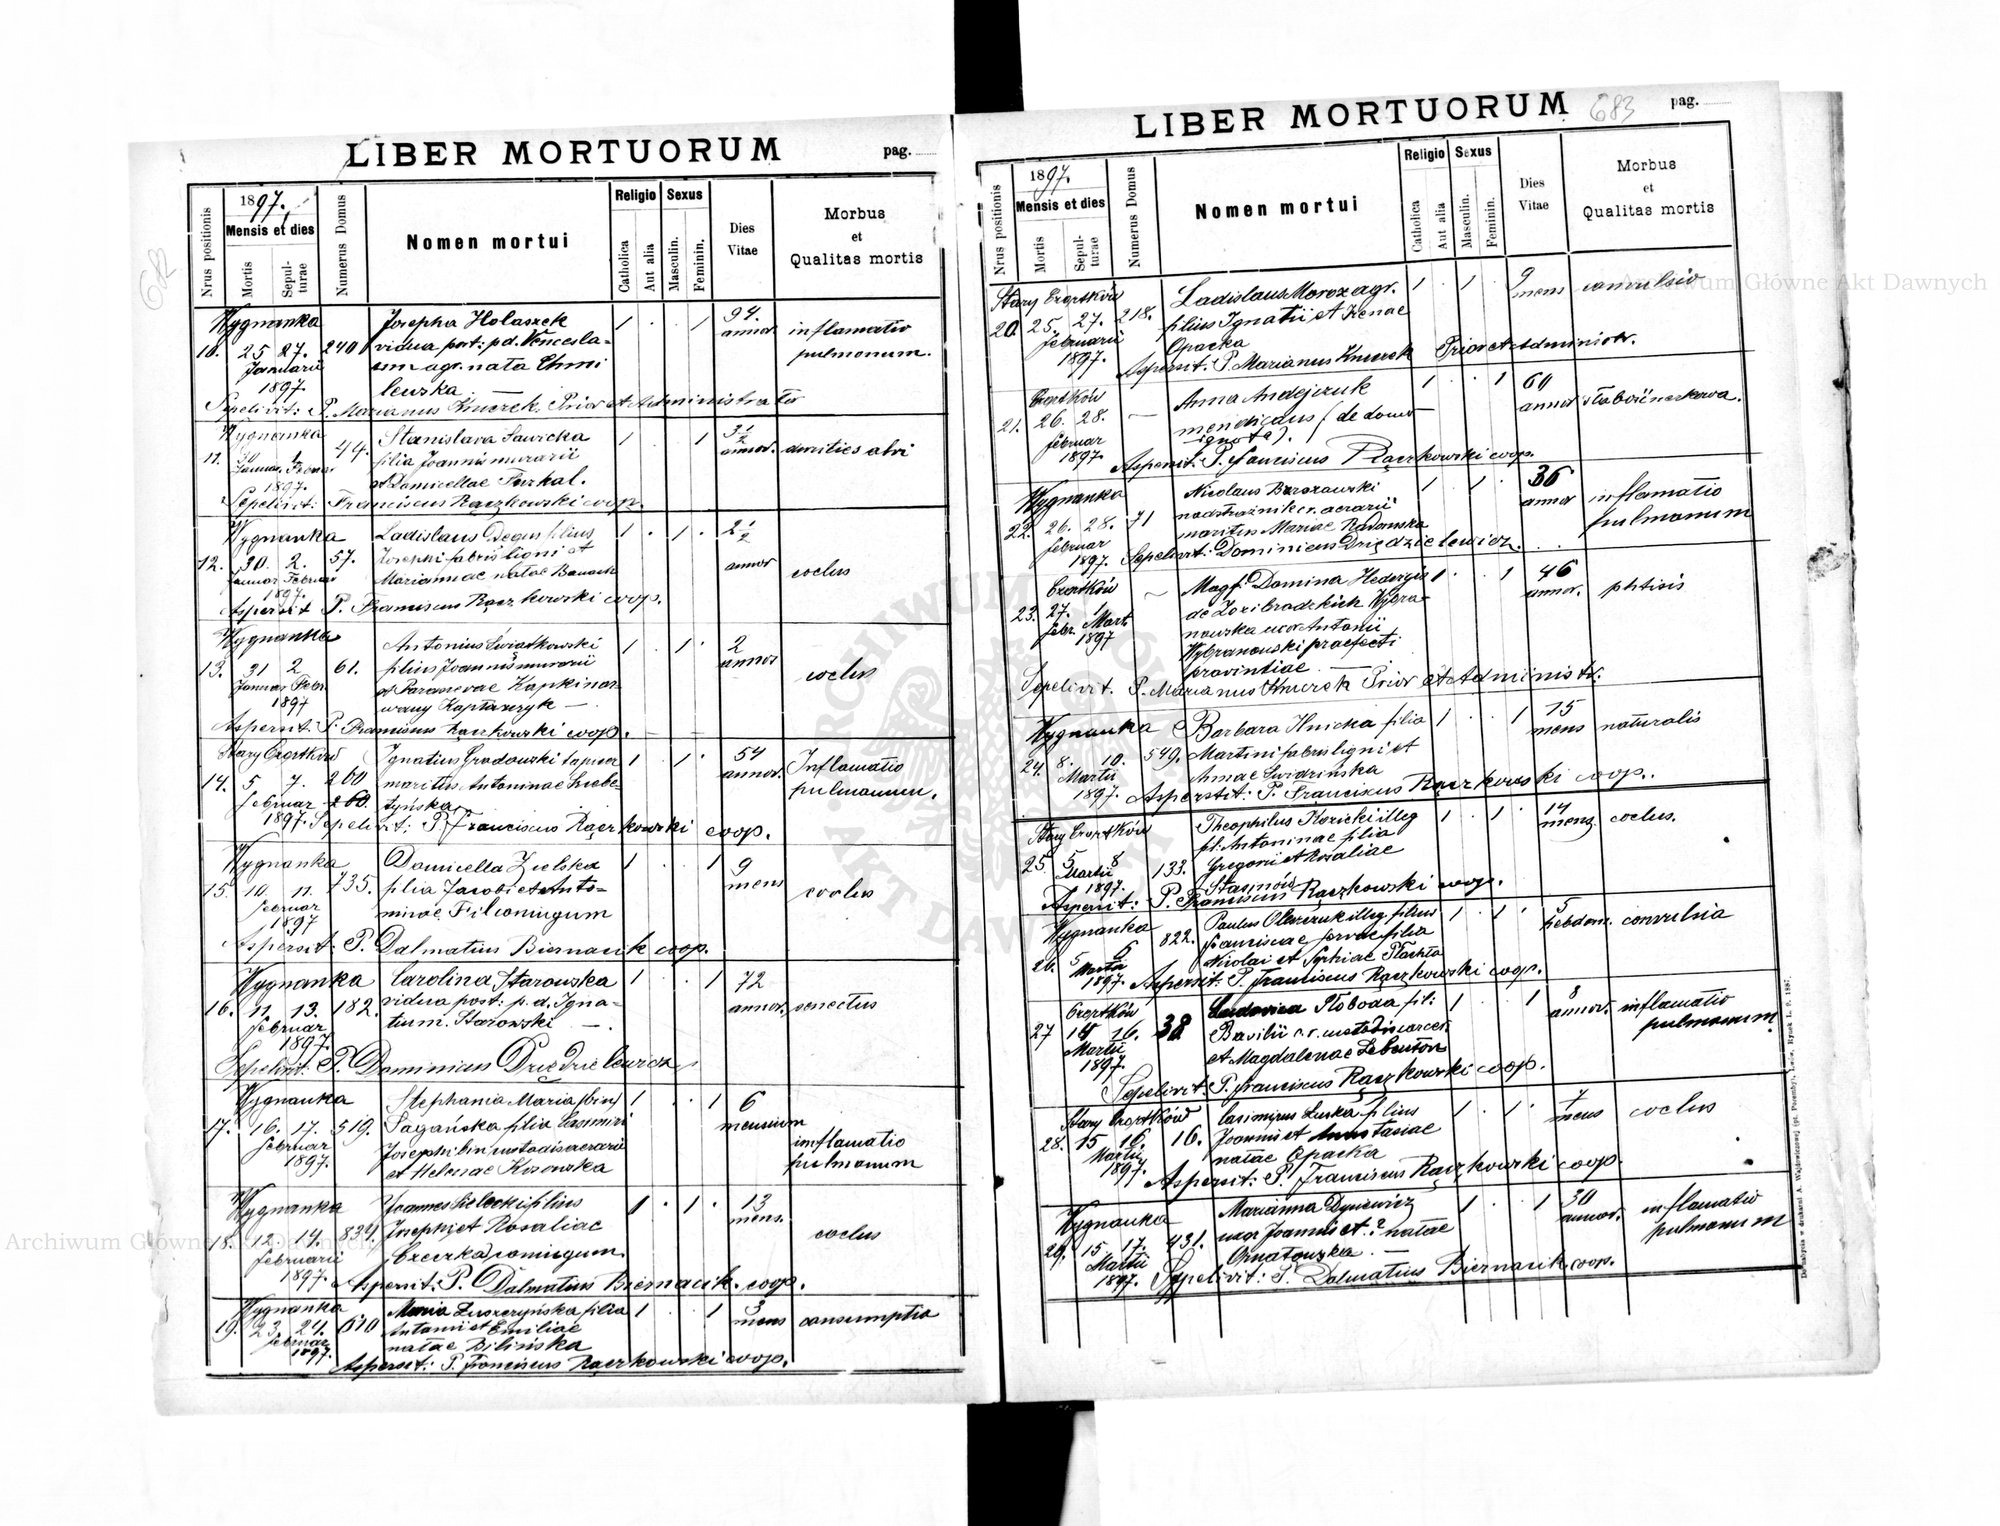 LIBER MORTUORUM
pag.
682
1897.
Mensis et dies
Nrus positionis
Mortis
Sepul-
turae
Numerus Domus
Nomen mortui
Religio
Catholica
Aut alia
Sexus
Masculin.
Feminin.
Dies
Vitae
Morbus
et
Qualitas mortis
Wygnanka Josepha Holaszek 1 . . 1 94.
10. 25 27. 240 vidua post: p.d. Vencesla- annor inflamatio
Januarii um agr. nata Chmi pulmonum.
1897. lewska
Sepelivit: P. Marianus Knurek Prior et Administrator
Wygnanka 44. Stanislava Sawicka 1 . . 1 3 1/2
11. 30 1 filia Joannis murarii annor.
Januar. Febr.
1897. et Domicellae Furkal.
Sepelivit: Franciscus Rączkowski coop.
Wygnanka Ladislaus Degus filius 1 . 1 . 2 1/2
12. 30. 2. 57. Josephi fabri lioni et annor coclus
Januar Februar Mariannae natae Banach
1897.
Aspersit P. Franciscus Rączkowski coop.
Wygnanka Antonius Światkowski 1 . 1 . 2
13. 31 2 61. filius Joannis murarii annor coclus
Januar Febr. et Parascevae
1897
Aspersit: P. Franciscus Rączkowski coop.
Stary Czortków Ignatius Gradowski 1 . 1 . 54
14. 5 7. 260 maritus Antoninae annor. Inflamatio
februar 260. pulmonum.
1897. Sepelivit: P. Franciscus Rączkowski coop.
Wygnanka Domicella Zielska 1 . . 1 9
15. 10. 11. 735. filia Jacobi et Anto- mens coclus
februar ninae Fil coniugum
1897
Aspersit P. Dalmatius Biernacik coop.
Wygnanka Carolina Starowska 1 . . 1 72
16. 11. 13. 182. vidua post: p.d. Igna- annor. senectus
februar tium. Starowski
1897.
Sepelivit: P. Dominicus Dziędzielewicz
Wygnanka Stephania Maria (bin) 1 . . 1 6
17. 16. 17. 519. Sagańska filia Casimiri mensium
februar Josephi bin custodis aerarii inflamatio
1897. et Helenae Kosowska pulmonum
Wygnanka Joannes Bielecki filius 1 . 1 . 13
18. 12. 14. 834. Josephi et Rosaliae mens. coclus
februarii coniugum.
1897. Aspersit: P. Dalmatius Biernacik. coop.
Wygnanka Maria Zuszczyńska filia 1 . . 1 3
19. 23. 24. 610 Antonii et Emiliae mens consumptia
februar natae Bilińska
1897.
Aspersit: P. Franciscus Rączkowski coop.
LIBER MORTUORUM
683
pag.
1897.
Mensis et dies
Nrus positionis
Mortis
Sepul-
turae
Numerus Domus
Nomen mortui
Religio
Catholica
Aut alia
Sexus
Masculin.
Feminin.
Dies
Vitae
Morbus
et
Qualitas mortis
Stary Czortków Ladislaus Moroz agr. 1 . 1 . 9
20. 25. 27. 218. filius Ignatii et Xenae mens convulsio
februarii Opacka
1897. Aspersit: P. Marianus Knurek Prior et Administr.
Czortków Anna Andejczuk 1 . . 1 60
21. 26. 28. — mendicans (de domo annor
februar ignota).
1897. Aspersit: P. Franciscus Rączkowski coop.
Wygnanka Nicolaus Brzozowski 1 . 1 . 36
22. 26. 28. 71 nadstrażnik c.r. aerarii annor inflamatio
februar maritus Mariae Radomska pulmonum
1897. Sepelivit: Dominicus Dziędzielewicz.
Czortków — Magf. Domina Hedwigis 1 . . 1 46
23. 27. 1 de Zozibrodzkich Wybra- annor. phtisis
febr. Mart nowska uxor Antonii
1897 Wybranowski praefecti
provintiae.
Sepelivit. P. Marianus Knurek Prior et Administr.
Wygnanka Barbara Ilnicka filia 1 . . 1 15
24. 8. 10. 549. Martini fabri ligni et mens naturalis
Martii Annae Swidzińska
1897. Aspersit: P. Franciscus Rączkowski coop.
Stary Czortków Theophilus Kozicki illeg 1 . 1 . 14
25. 5 8 133. fil. Antoninae filia mens. coclus.
Martii Gregorii et Rosaliae
1897. Stasinów
Aspersit: P. Franciscus Rączkowski coop.
Wygnanka 822. Paulus Olearczuk illeg. filius 1 . 1 . 5
26. 5 6 Franciscae servae filia hebdom. convulsia
Martii Nicolai et Tyrhiae Płachta
1897. Aspersit: P. Franciscus Rączkowski coop.
Czortków Ludovica Słoboda fil: 1 . . 1 8
27 14 16. 38 Basilii c.r. custodis carcer. annor. inflamatio
Martii et Magdalenae Lebenton pulmonum
1897.
Sepelivit P. Franciscus Rączkowski coop.
Stary Czortków Casimirus Luska filius 1 . 1 . 7
28. 15 16. 16. Joannis et Anastasiae mens coclus
Martii natae Opacka
1897. Aspersit: P. Franciscus Rączkowski coop.
Wygnanka Marianna Dyniewicz 1 . . 1 30
29. 15. 17. 431. uxor Joannis et ? natae annor. inflamatio
Martii Ornatowska. pulmonum
1897. Sepelivit: P. Dalmatius Biernacik coop.
Archiwum Główne Akt Dawnych
Archiwum Główne Akt Dawnych
ARCHIWUM GŁÓWNE AKT DAWNYCH